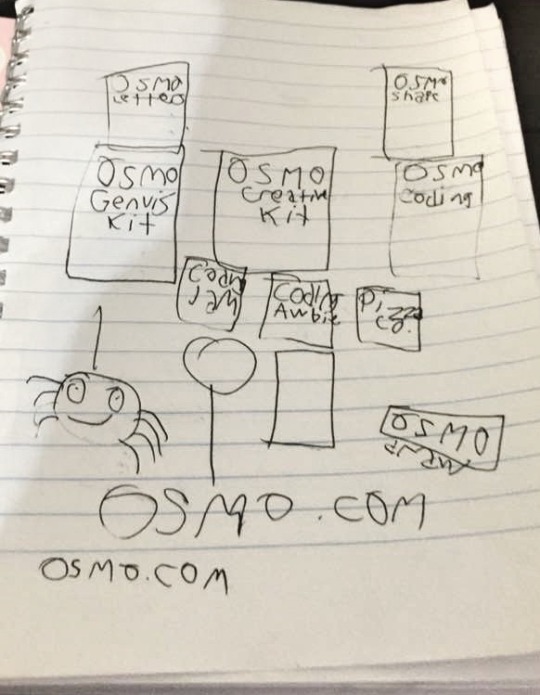 OSMO
Letters
OSMO
shape
OSMO
Genvis
Kit
OSMO
Creative
Kit
OSMO
Coding
Coding
Ambie
Pizza
co.
OSMO
OSMO.COM
OSMO.COM